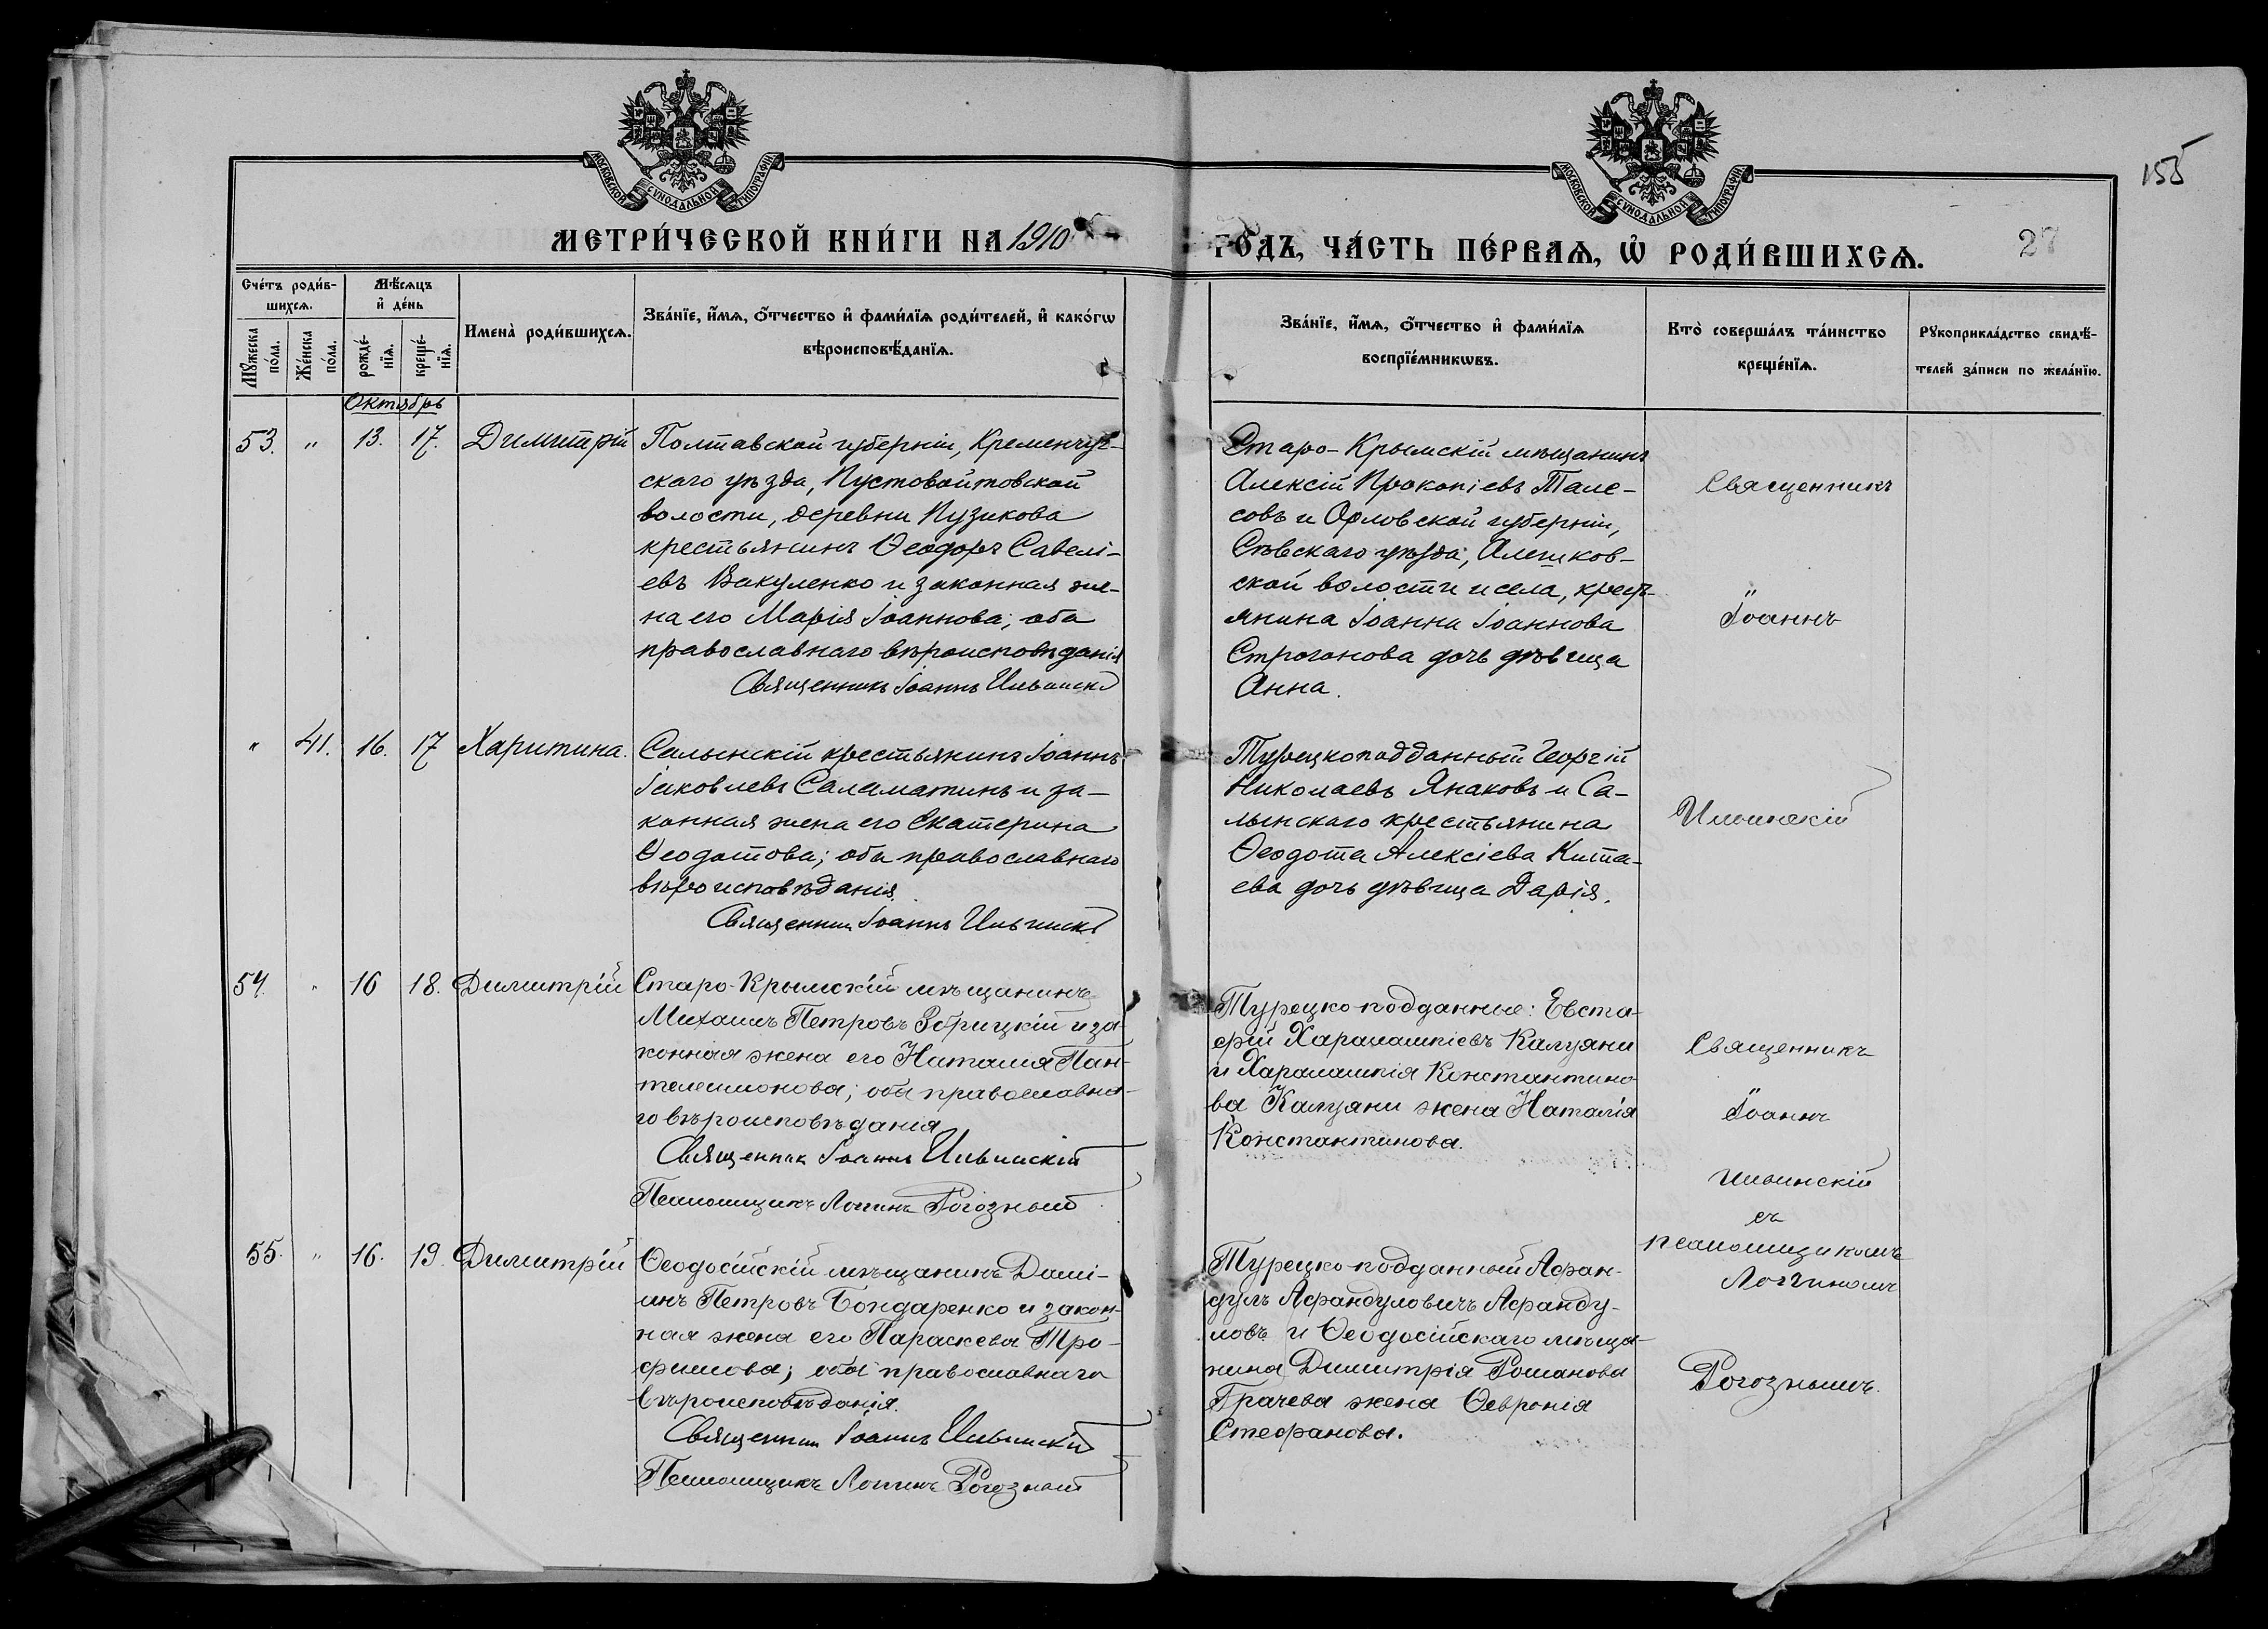 МОСКОВСКОЙ СѴНОДАЛЬНОЙ ТИПОГРАФІИ
МОСКОВСКОЙ СѴНОДАЛЬНОЙ ТИПОГРАФІИ
155
МЕТРИ́ЧЕСКОЙ КНИ́ГИ НА 1910
ГО́ДЪ, ЧА́СТЬ ПЕ́РВАѦ, Ѡ҆ РОДИ́ВШИХСѦ.
27
Сче́тъ роди́в-
шихсѧ.
Мꙋ́жеска по́ла.
Же́нска по́ла.
Мѣ́сѧцъ
и҆ де́нь
рожде́-
нїѧ.
креще́-
нїѧ.
Имена̀ роди́вшихсѧ.
Зва́нїе, и҆́мѧ, ѻ҆́тчество и҆ фами́лїѧ роди́телей, и҆ како́гѡ
вѣроисповѣ́данїѧ.
Зва́нїе, и҆́мѧ, ѻ҆́тчество и҆ фами́лїѧ
воспрїе́мникѡвъ.
Кто̀ соверша́лъ та́инство
креще́нїѧ.
Рꙋкоприкла́дство свидѣ́-
телей за́писи по жела́нїю.
Октябрь
53. " 13. 17. Димитрій
Полтавской губерніи, Кременчуг-
скаго уѣзда, Пустовойтовской
волости, деревни Пузикова
крестьянинъ Ѳеодоръ Савелі-
евъ Вакуленко и законная же-
на его Марія Іоаннова; оба
православнаго вѣроисповѣданія
Священникъ Іоаннъ Ильинскій
Старо-Крымскій мѣщанинъ
Алексій Прокопіевъ Тале-
совъ и Орловской губерніи,
Сѣвскаго уѣзда, Алешков-
ской волости и села, кресть-
янина Іоанна Іоаннова
Строганова дочь дѣвица
Анна.
Священникъ
Іоаннъ
" 41. 16. 17 Харитина.
Салынскій крестьянинъ Іоаннъ
Іаковлевъ Саламатинъ и за-
конная жена его Екатерина
Ѳеодотова; оба православнаго
вѣроисповѣданія.
Священникъ Іоаннъ Ильинскій
Турецкоподданный Георгій
Николаевъ Янаковъ и Са-
лынскаго крестьянина
Ѳеодота Алексіева Кита-
ева дочь дѣвица Дарія.
Ильинскій
54. " 16 18. Димитрій
Старо-Крымскій мѣщанинъ
Михаилъ Петровъ Збрицкій и за-
конная жена его Наталія Пан-
телеимонова; оба православна-
го вѣроисповѣданія
Священникъ Іоаннъ Ильинскій
Псаломщикъ Логинъ Рогозный
Турецко-подданные: Евста-
фій Харалампіевъ Калуяни
и Харалампія Константино-
ва Калуяни жена Наталія
Константинова.
Священникъ
Іоаннъ
Ильинскій
съ
псаломщикомъ
Логгиномъ
Рогознымъ.
55. " 16. 19. Димитрій
Ѳеодосійскій мѣщанинъ Дамі-
анъ Петровъ Бондаренко и закон-
ная жена его Параскева Тро-
фимова; оба православнаго
вѣроисповѣданія.
Священникъ Іоаннъ Ильинскій
Псаломщикъ Логинъ Рогозный
Турецко-подданный Афан-
дулъ Афандуловичъ Афанду-
ловъ и Ѳеодосійскаго мѣща-
нина Димитрія Романова
Грачева жена Ѳевронія
Стефанова.